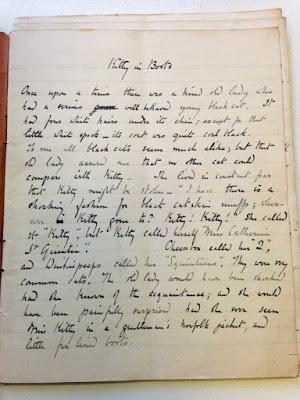 Kitty in Boots
Once upon a time there was a kind old lady who
had a serious well behaved young black cat. It
had four white hairs under its chin; except for that
little white spot – its coat was quite coal black.
To me all black cats seem much alike; but that
old lady assured me that no other cat could
compare with Kitty. She lived in constant fear
that Kitty might be stolen – "I hear there is a
shocking fashion for black catskin muffs; wher-
ever is Kitty gone to? Kitty! Kitty!" She called
it "Kitty", but Kitty called herself Miss Catherine
St Quintin". Cheesebox called her "Q",
and Winkiepeeps called her "Squintums". They were very
common cats. The old lady would have been shocked
had she known of the acquaintance; and she would
have been painfully surprised had she ever seen
Miss Kitty in a gentleman's norfolk jacket, and
little fur lined boots.